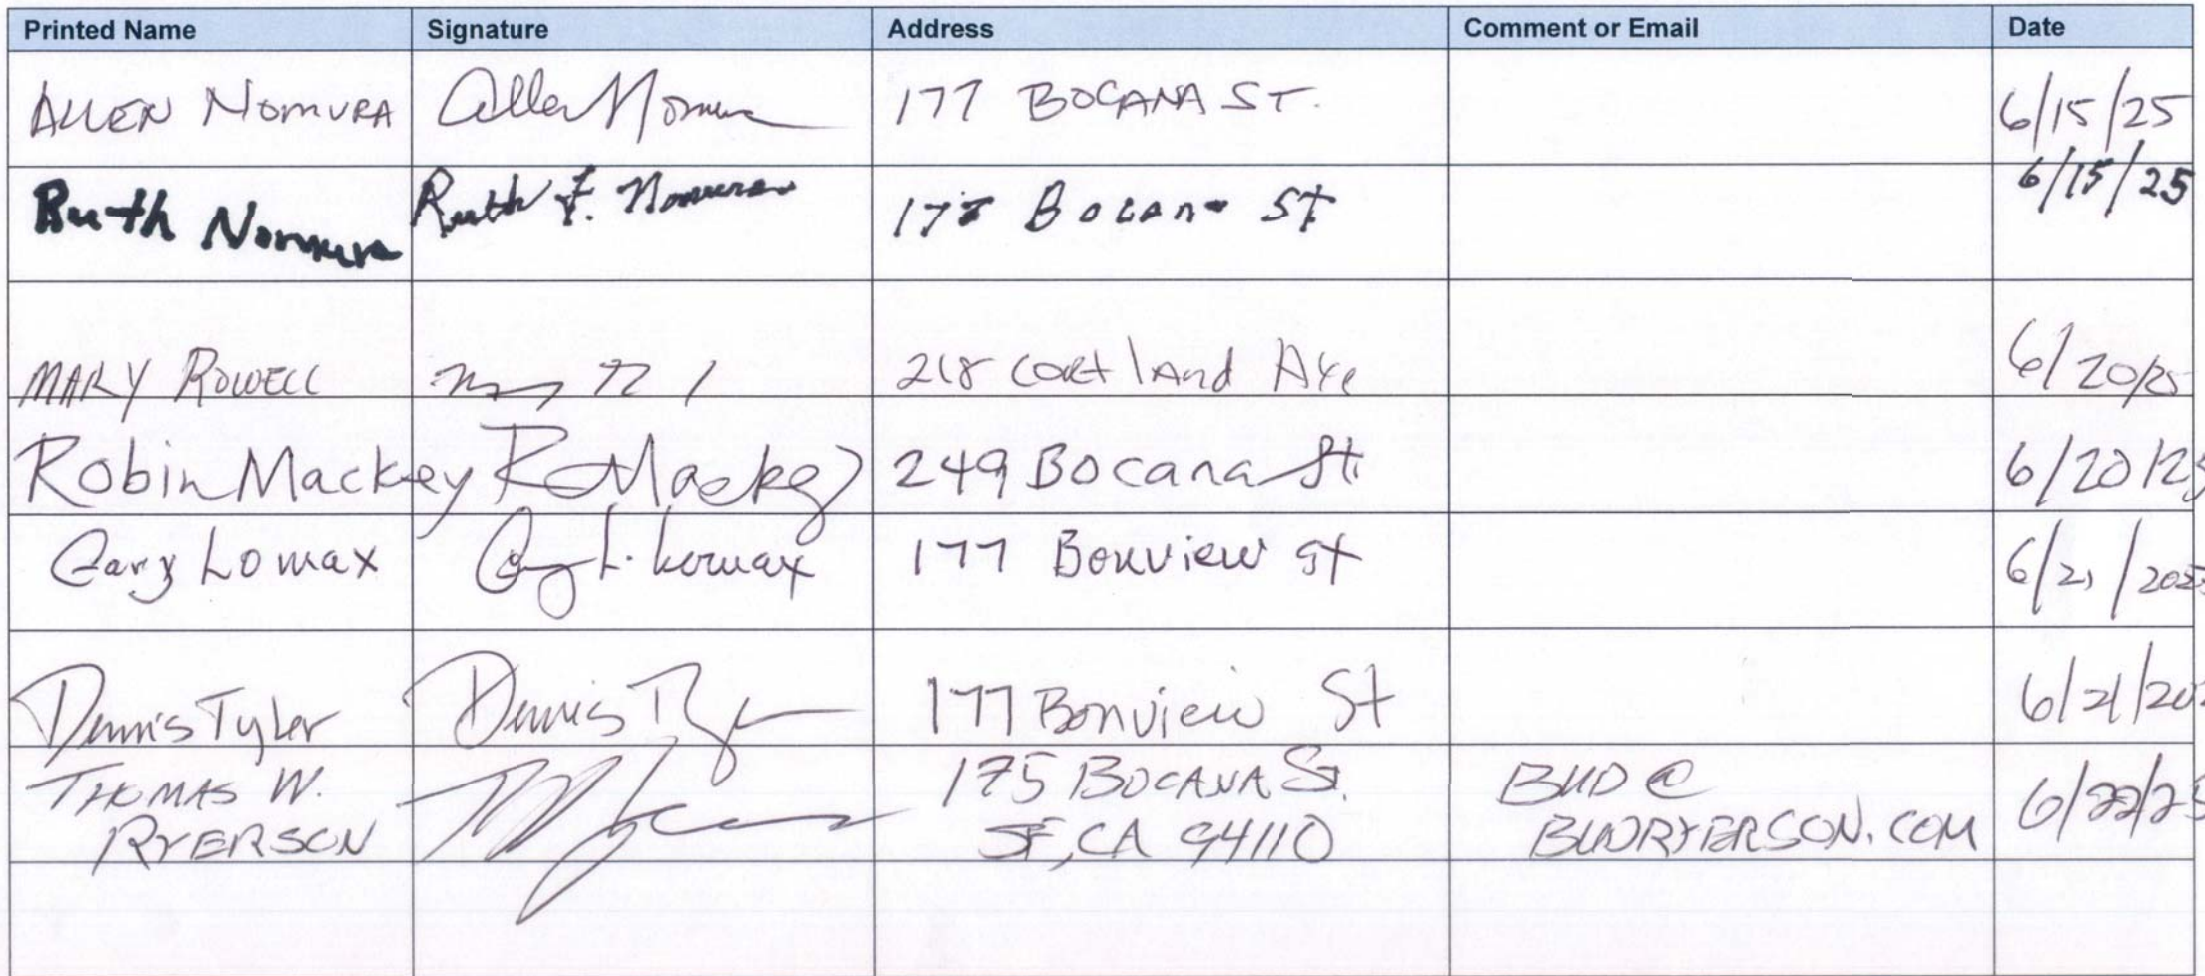 Printed Name Signature Address Comment or Email Date
ALLEN NOMURA Allen Nomura 177 BOCANA ST. 6/15/25
Ruth Nomura Ruth F. Nomura 177 Bocana St 6/15/25
MARY ROWELL 218 Cortland Ave 6/20/25
Robin Mackey R Mackey 249 Bocana St 6/20/25
Gary Lomax Gary L. Lomax 177 Bonview St 6/21/2025
Dennis Tyler Dennis 177 Bonview St 6/21/202
THOMAS W. 175 BOCANA ST. BUD@ 6/22/25
RYERSON SF, CA 94110 BUDRYERSON.COM